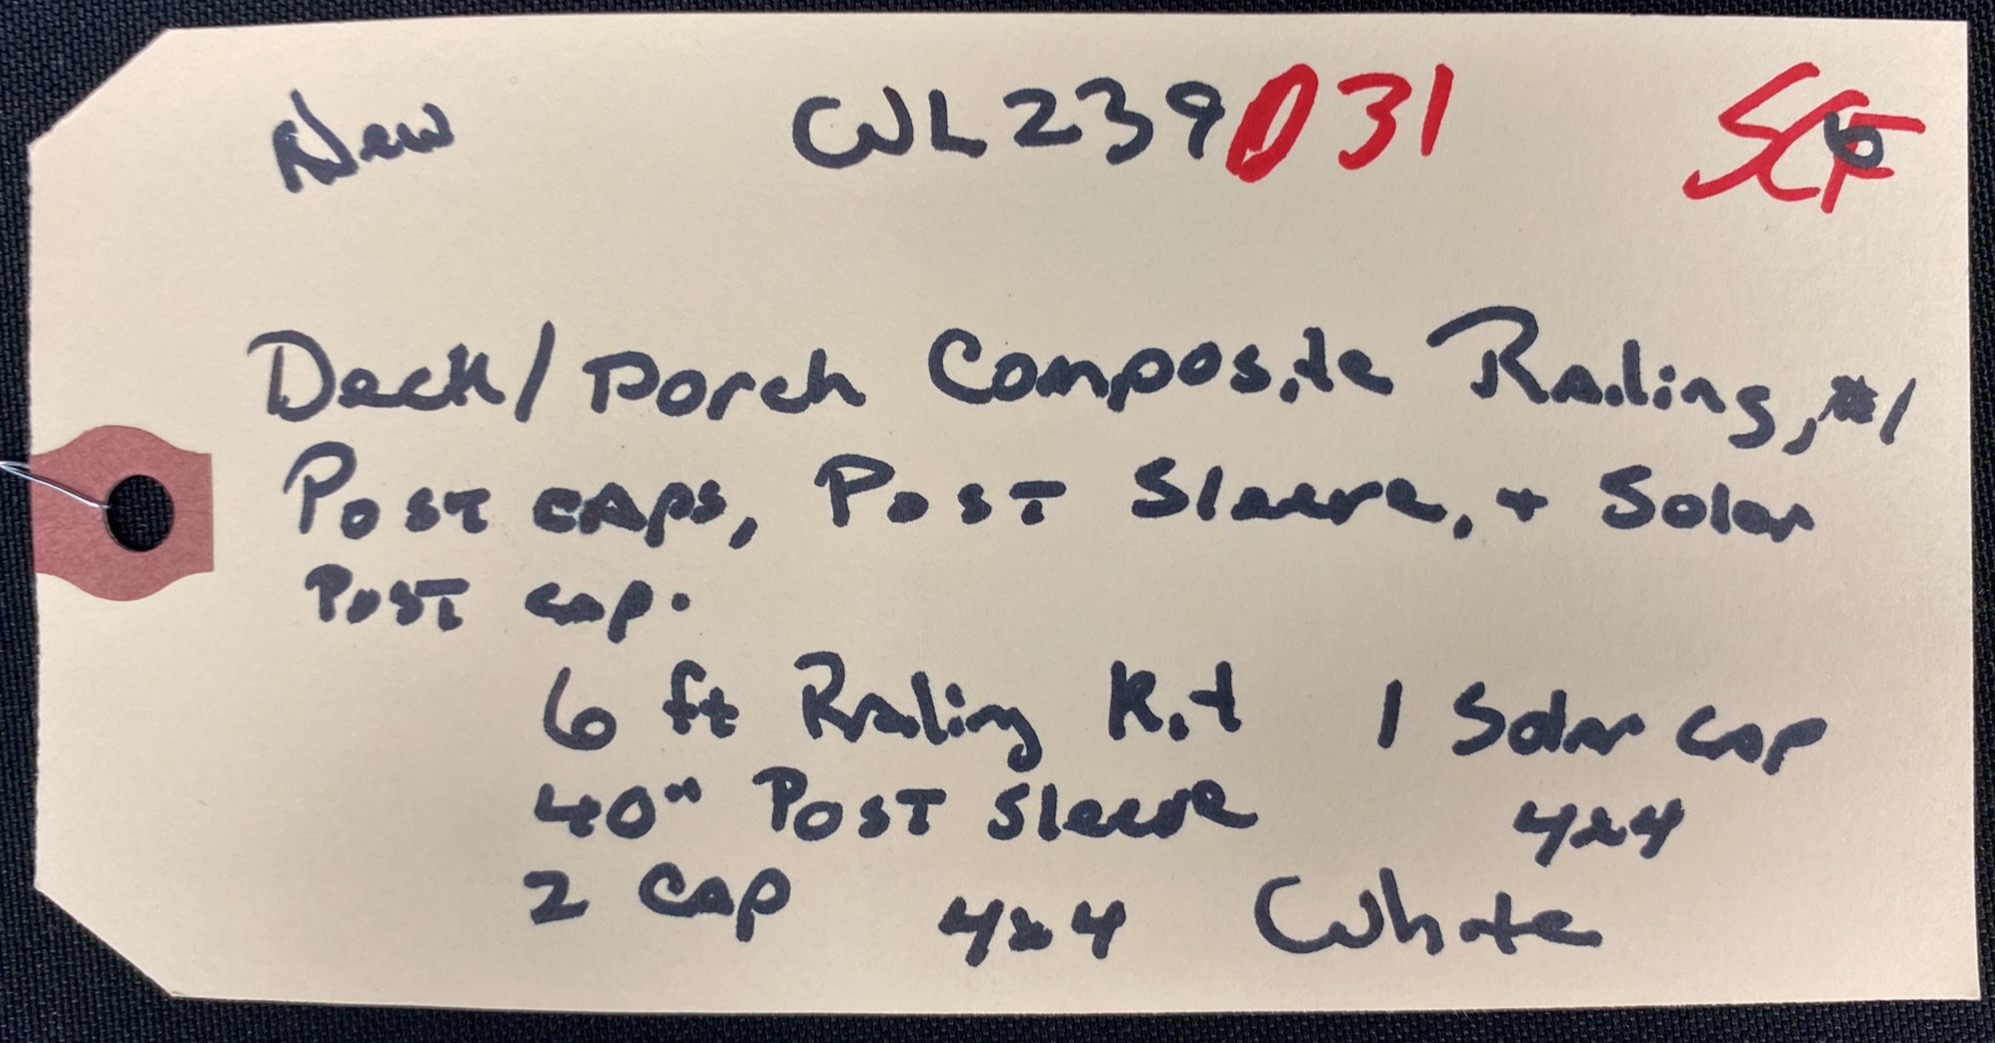 New WL239031 SCF
Deck/Porch Composite Railing, #1
Post caps, Post Sleeve, + Solar
Post cap.
6 ft Railing Kit 1 Solar Cap
40" Post Sleeve 4x4
2 Cap 4x4 White